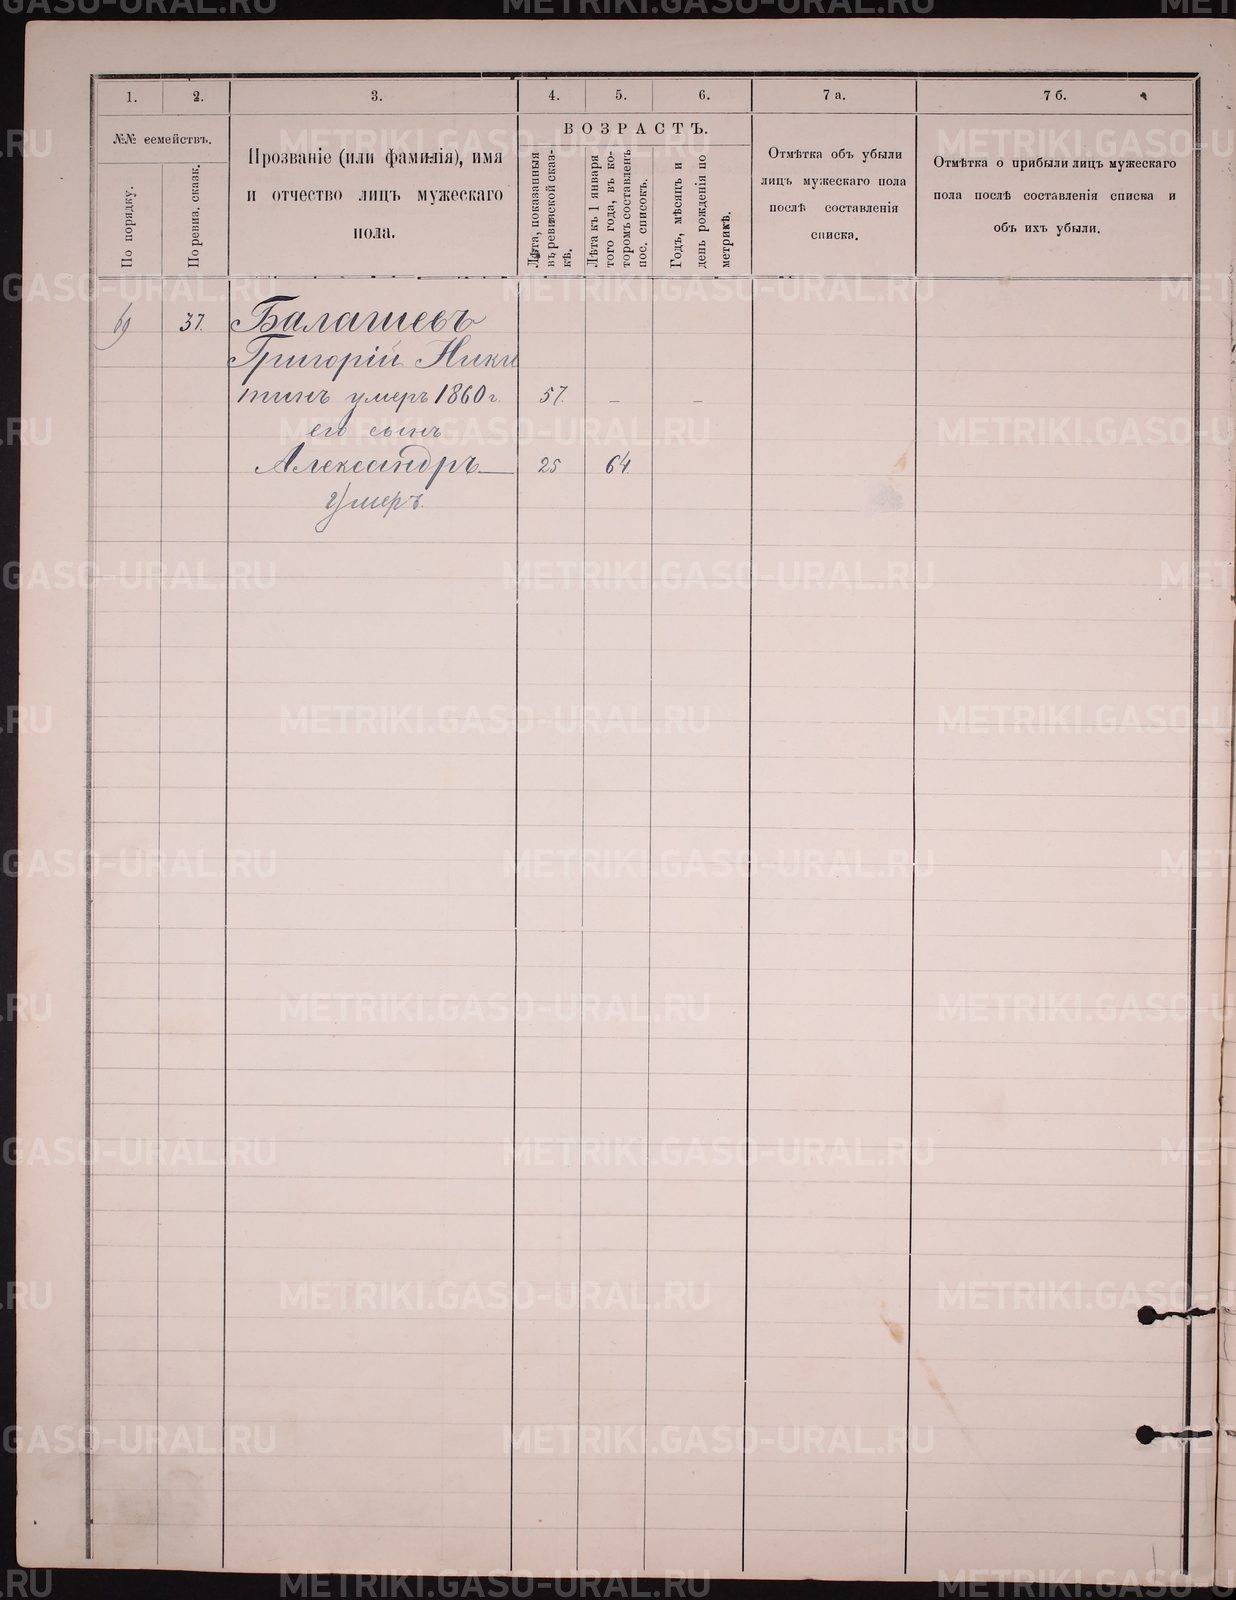 1.
2.
3.
4.
5.
6.
7 а.
7 б.
№№ семействъ.
По порядку.
По ревиз. сказк.
Прозваніе (или фамилія), имя
и отчество лицъ мужескаго
пола.
ВОЗРАСТЪ.
Лѣта, показанныя
въ ревизской сказ-
кѣ.
Лѣта къ 1 января
того года, въ ко-
торомъ составленъ
пос. списокъ.
Годъ, мѣсяцъ и
день рожденія по
метрикѣ.
Отмѣтка объ убыли
лицъ мужескаго пола
послѣ составленія
списка.
Отмѣтка о прибыли лицъ мужескаго
пола послѣ составленія списка и
объ ихъ убыли.
69 37. Балашевъ
Григорій Ники
тинъ умеръ 1860 г. 57. – –
его сынъ
Александръ 25 64
Умеръ.
METRIKI.GASO-URAL.RU